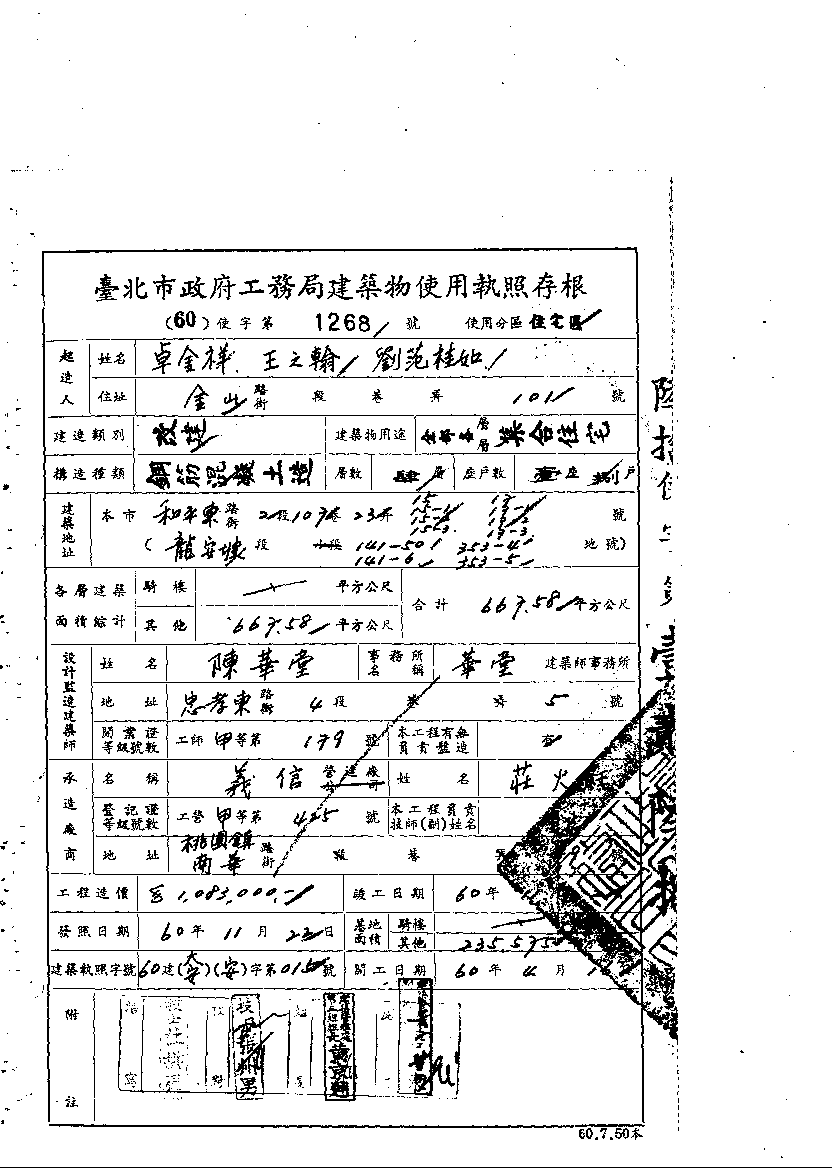 臺北市政府工務局建築物使用執照存根
(60)使字第 1268 號 使用分區 住宅區
起造人 姓名 卓金祥 王之翰 劉范桂如
住址 金山 路街 段 巷 弄 101 號
建造類別 改造 建築物用途 全部各層層 集合住宅
構造種類 鋼筋混凝土造 層數 肆 層 座戶數 壹 座 捌 戶
建築地址 本市 和平東 路街 2段107巷23弄 15 15-1 15-2 15-3 17 17-1 17-2 17-3 號
(龍安坡 段 小段 141-50 141-6 353-4 353-5 地號)
各層建築面積綜計 騎樓 平方公尺 合計 667.58 平方公尺
其他 667.58 平方公尺
設計監造建築師 姓名 陳華堂 事務所名稱 華堂 建築師事務所
地址 忠孝東 路街 4段 巷 弄 5 號
開業證等級號數 工師 甲等第 179 號 本工程有無負責監造 有
承造廠商 名稱 義信 營造廠公司 姓名 莊火
登記證等級號數 工營 甲等第 425 號 本工程負責技師(副)姓名
地址 桃園鎮南華 路街 段 巷
工程造價 1,083,000.- 竣工日期 60年
發照日期 60年11月23日 基地面積 騎樓
其他 235.575
建築執照字號 60建(大安)(安)字第015號 開工日期 60年4月
附註
60.7.50本